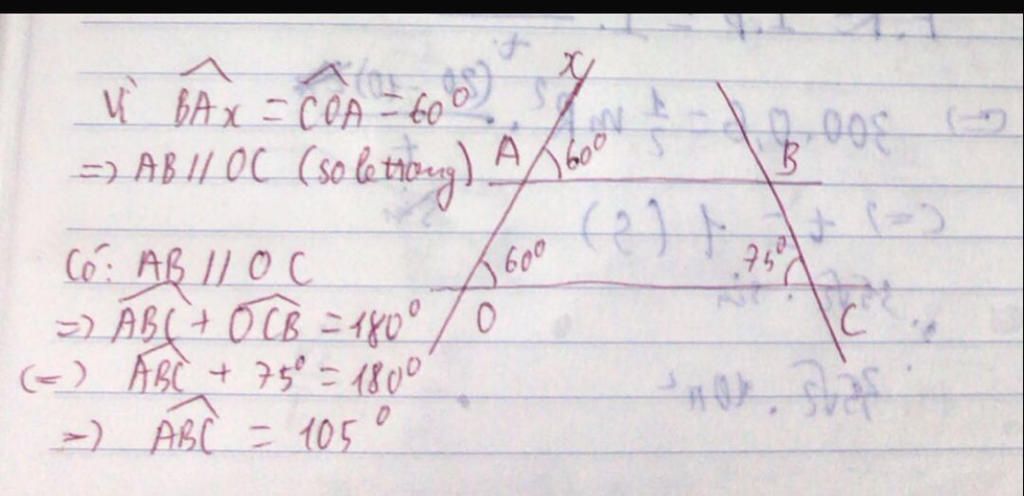 Vì BAx = COA = 60°
=> AB // OC (so le trong)
Có: AB // OC
=> ABC + OCB = 180°
(=) ABC + 75° = 180°
=) ABC = 105°
x
A 60° B
60° 75°
O C